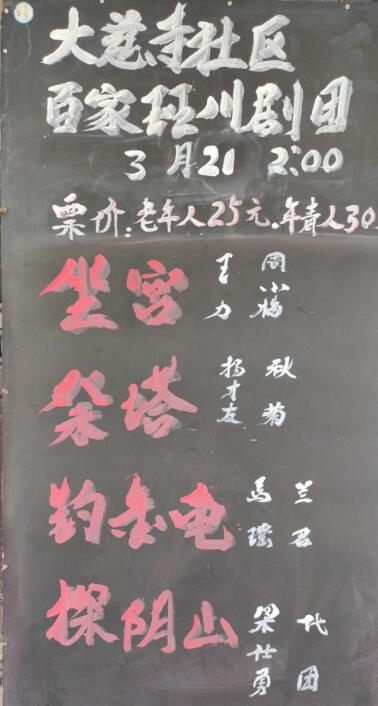 大慈寺社区
百家班川剧团
3月21 2:00
票价:老年人25元.年青人30
坐宫 王力 周小梅
祭塔 杨才友 秋菊
钓金龟 马瑶 兰君
探阴山 梁仕勇 代团